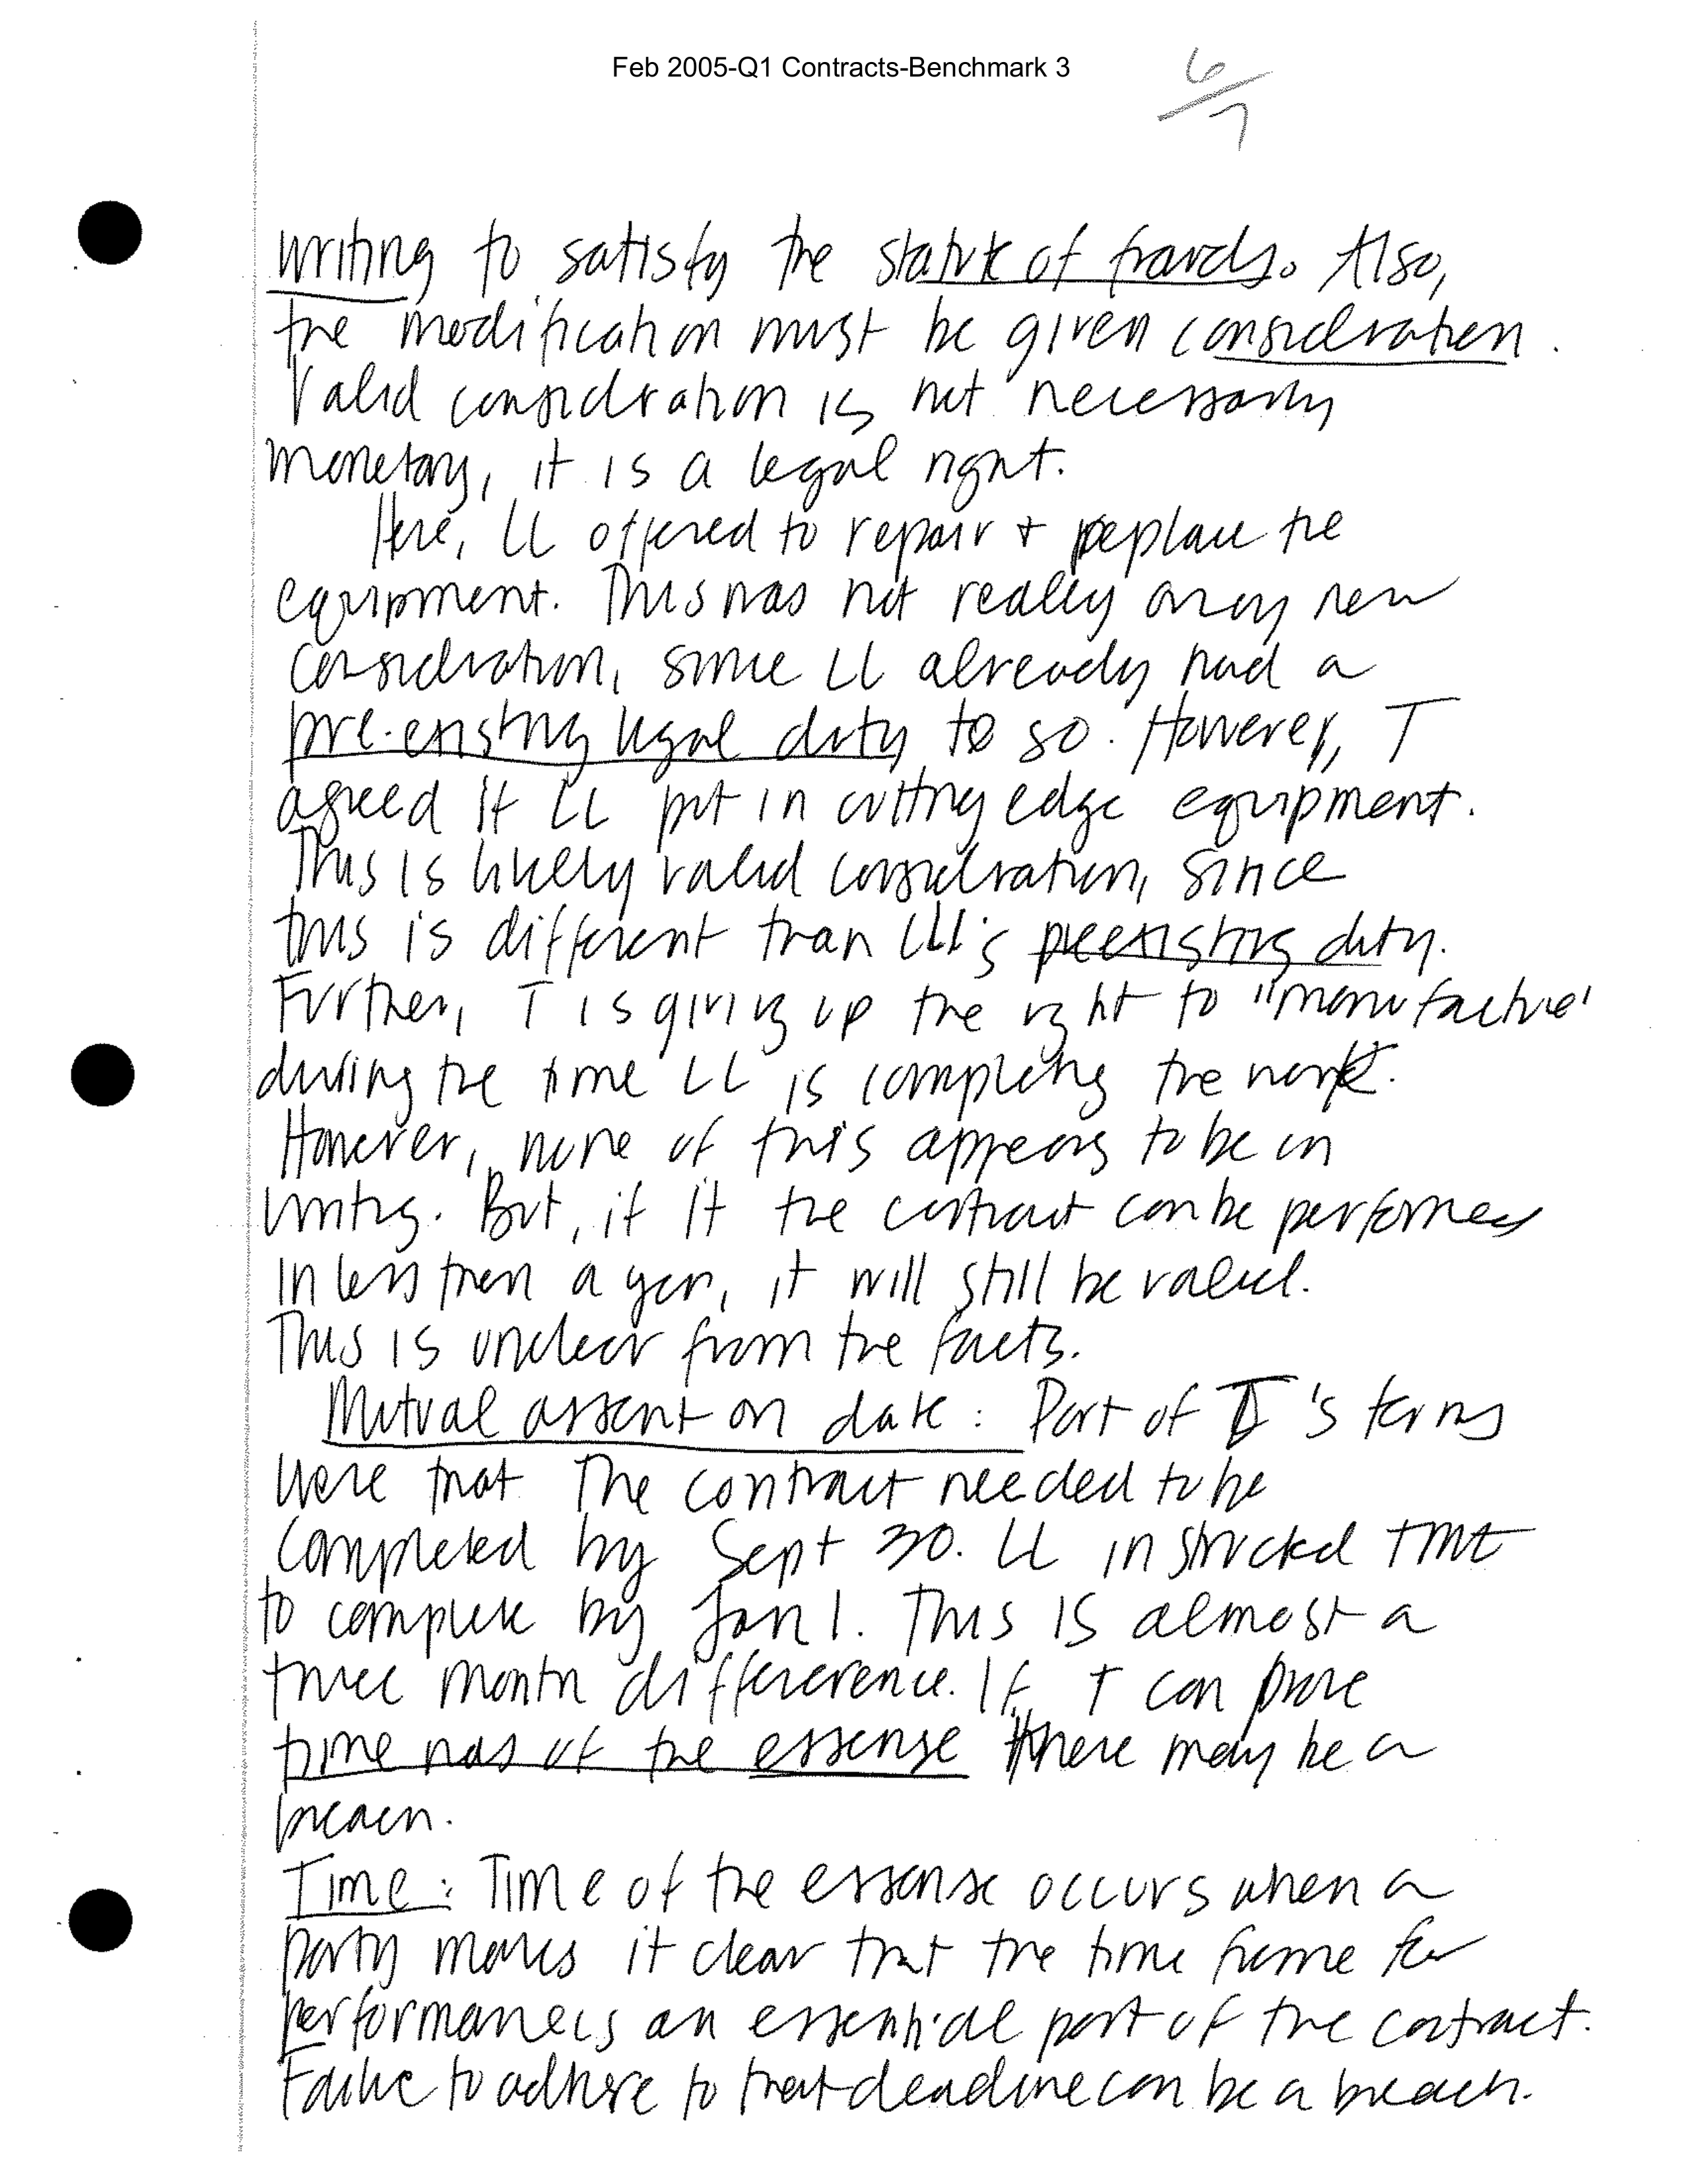 Feb 2005-Q1 Contracts-Benchmark 3
6/7
writing to satisfy the statute of frauds. Also,
the modification must be given consideration.
Valid consideration is not necessarily
monetary, it is a legal right.
Here, LL offered to repair + replace the
equipment. This was not really any new
consideration, since LL already had a
pre-existing legal duty to so. However, T
agreed if LL put in cutting edge equipment.
This is likely valid consideration, since
this is different than LL's preexisting duty.
Further, T is giving up the right to "manufacture"
during the time LL is completing the work.
However, none of this appears to be in
writing. But, if it the contract can be performed
in less then a year, it will still be valid.
This is unclear from the facts.
Mutual assent on date: Part of T's terms
were that the contract needed to be
completed by Sept 30. LL instructed TMT
to complete by Jan 1. This is almost a
three month difference. If T can prove
time was of the essense there may be a
breach.
Time: Time of the essense occurs when a
party makes it clear that the time frame for
performance is an essential part of the contract.
Failure to adhere to that deadline can be a breach.